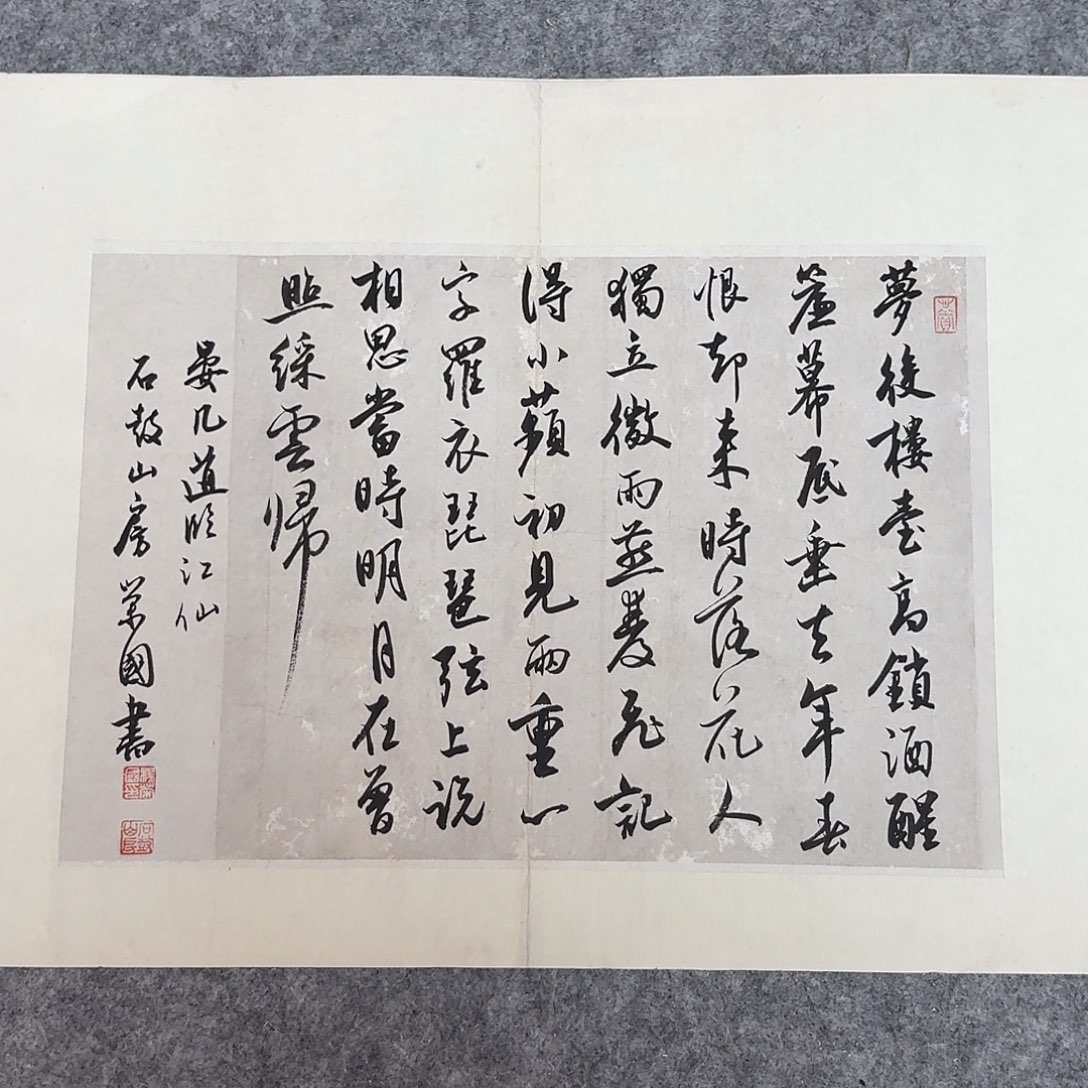 夢後樓臺高鎖酒醒
簾幕底垂去年春
恨却来時落花人
獨立微雨燕雙飛記
得小蘋初見兩重心
字羅衣琵琶弦上说
相思當時明月在曾
照綵雲歸
晏几道臨江仙
石鼓山房榮國書